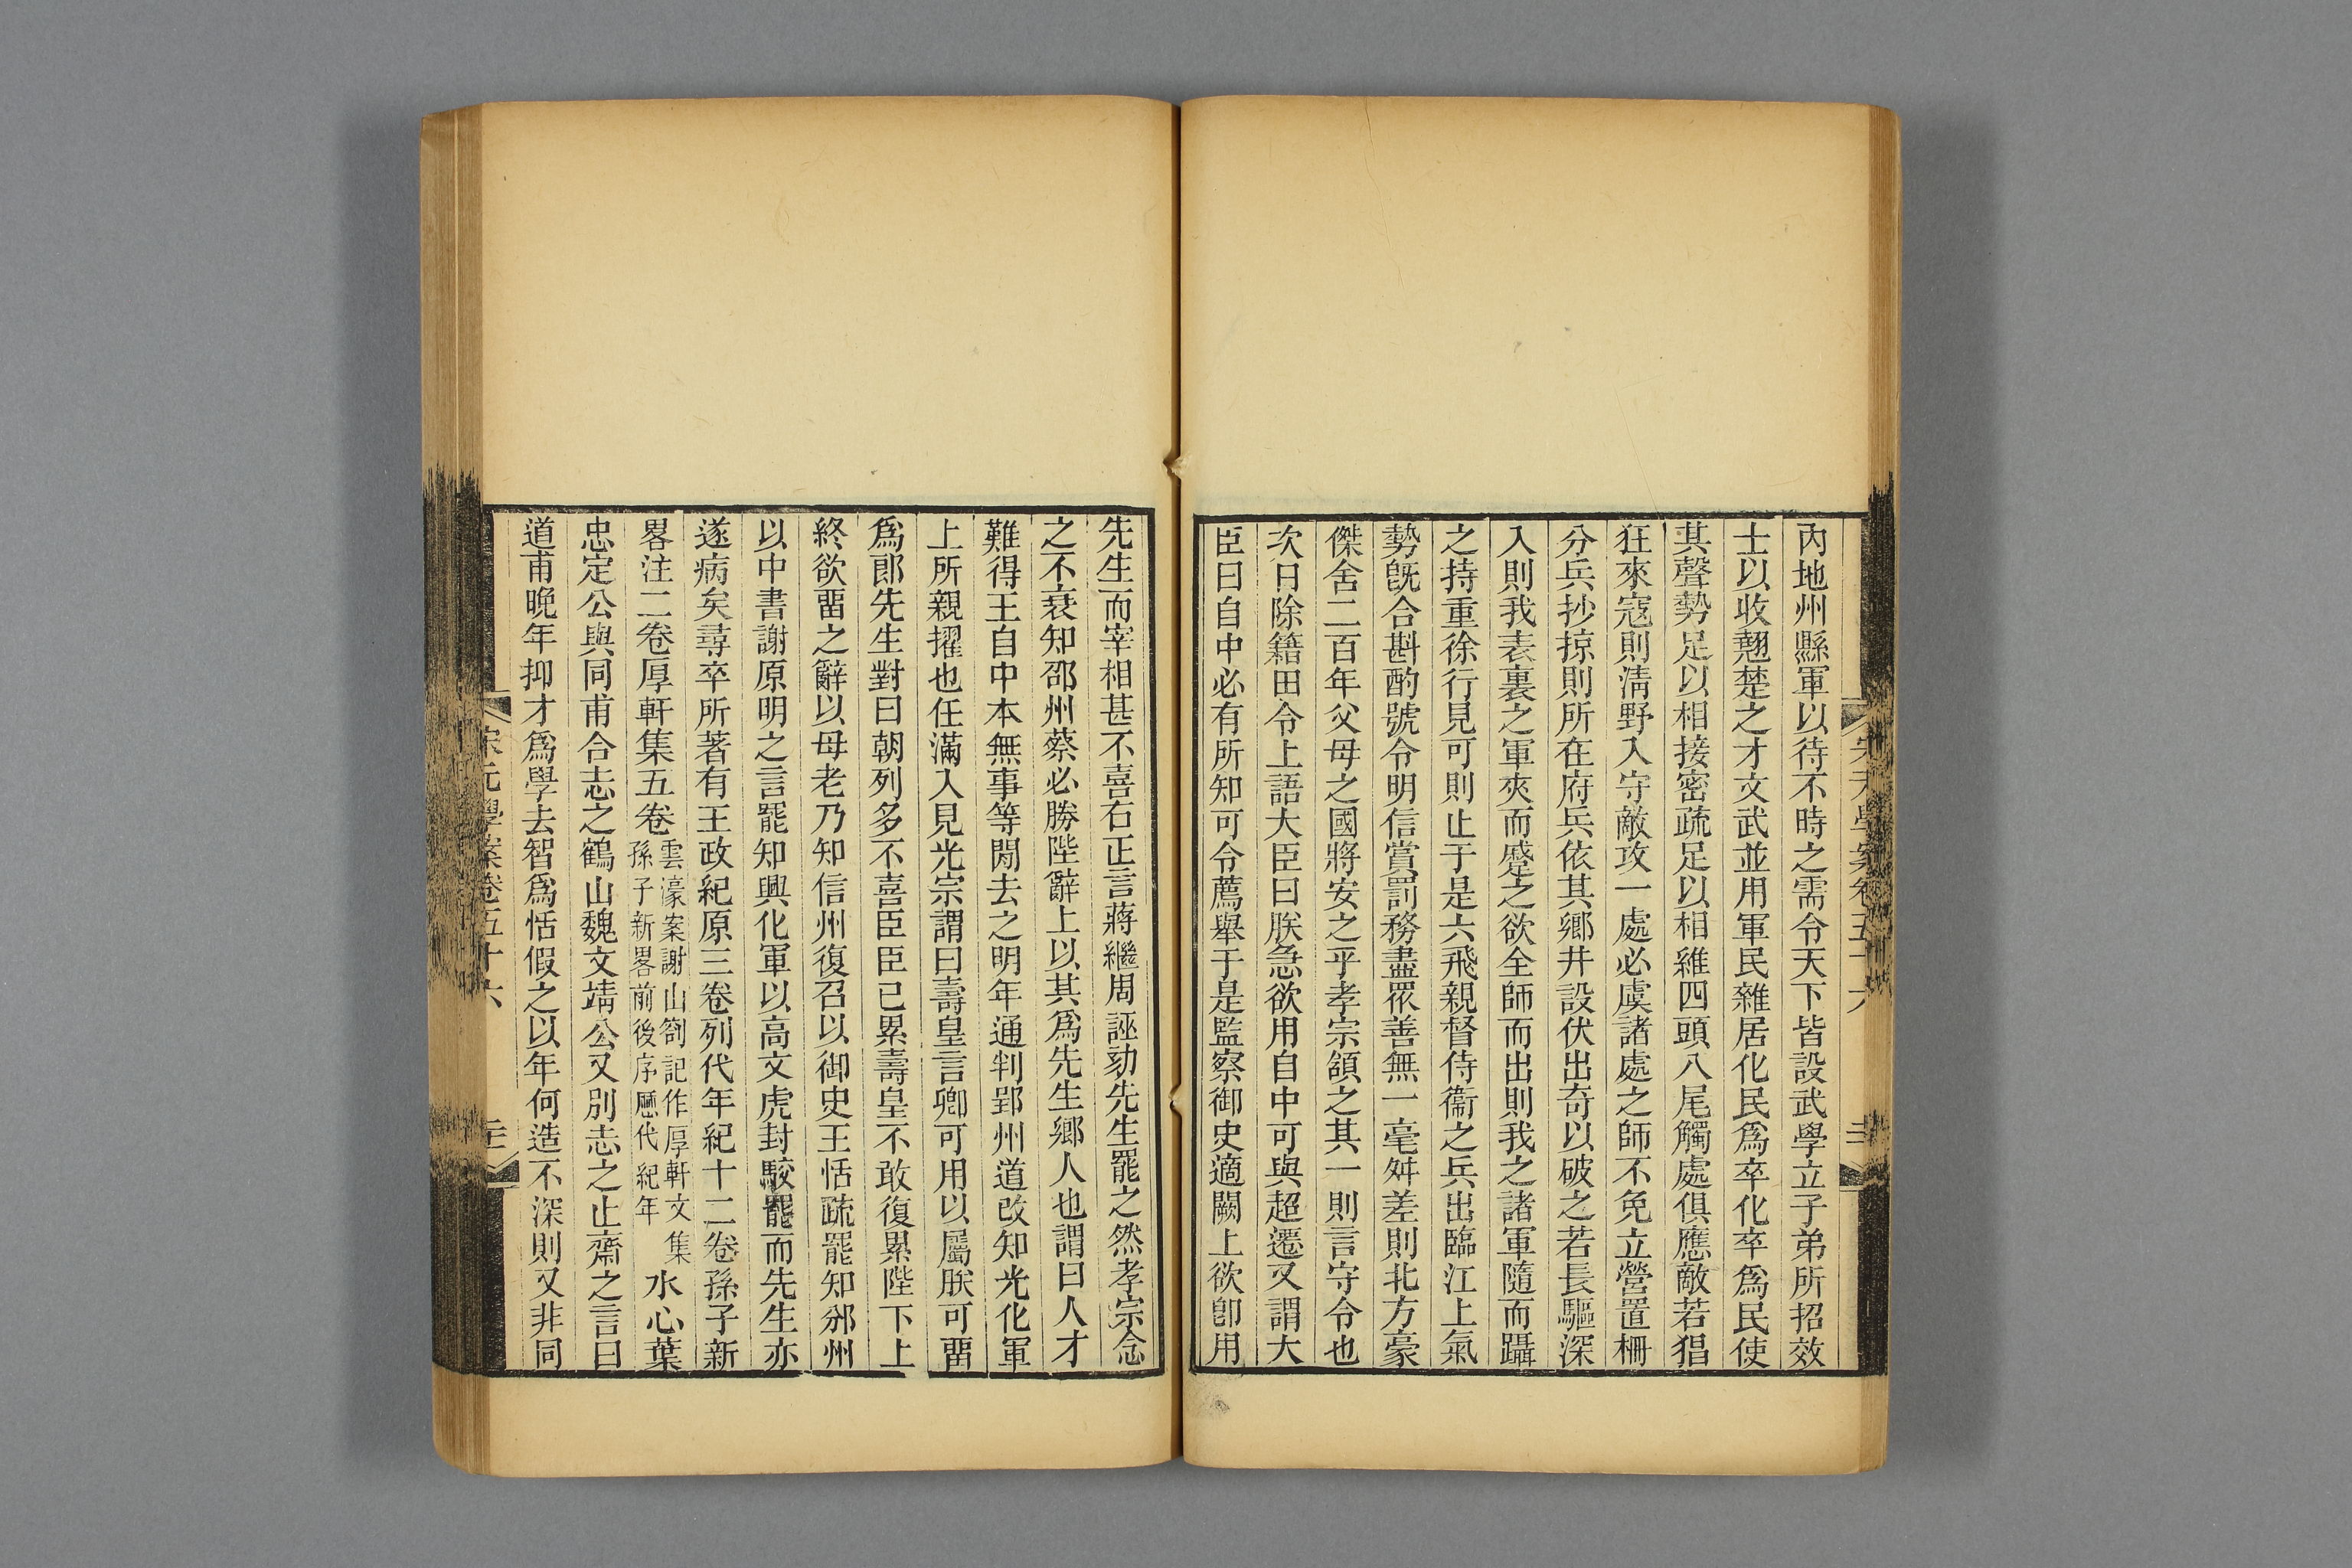 內地州縣軍以待不時之需令天下皆設武學立子弟所招效
士以收翹楚之才文武並用軍民雜居化民爲卒化卒爲民使
其聲勢足以相接密疏足以相維四頭八尾觸處俱應敵若猖
狂來寇則淸野入守敵攻一處必虞諸處之師不免立營置柵
分兵抄掠則所在府兵依其鄉井設伏出奇以破之若長驅深
入則我表裏之軍夾而蹙之欲全師而出則我之諸軍隨而躡
之持重徐行見可則止于是六飛親督侍衞之兵出臨江上氣
勢旣合斟酌號令明信賞罰務盡眾善無一毫舛差則北方豪
傑舍二百年父母之國將安之乎孝宗頷之其一則言守令也
次日除籍田令上語大臣曰朕急欲用自中可與超遷又謂大
臣曰自中必有所知可令薦舉于是監察御史適闕上欲卽用
先生而宰相甚不喜右正言蔣繼周誣劾先生罷之然孝宗念
之不衰知邵州蔡必勝陛辭上以其爲先生鄉人也謂曰人才
難得王自中本無事等閒去之明年通判郢州道改知光化軍
上所親擢也任滿入見光宗謂曰壽皇言卿可用以屬朕可畱
爲郎先生對曰朝列多不喜臣臣已累壽皇不敢復累陛下上
終欲畱之辭以母老乃知信州復召以御史王恬疏罷知邠州
以中書謝原明之言罷知興化軍以高文虎封駮罷而先生亦
遂病矣尋卒所著有王政紀原三卷列代年紀十二卷孫子新
畧注二卷厚軒集五卷雲濠案謝山劄記作厚軒文集孫子新畧前後序歷代紀年水心葉
忠定公與同甫合志之鶴山魏文靖公又別志之止齋之言曰
道甫晚年抑才爲學去智爲恬假之以年何造不深則又非同
宋元學案卷五十六